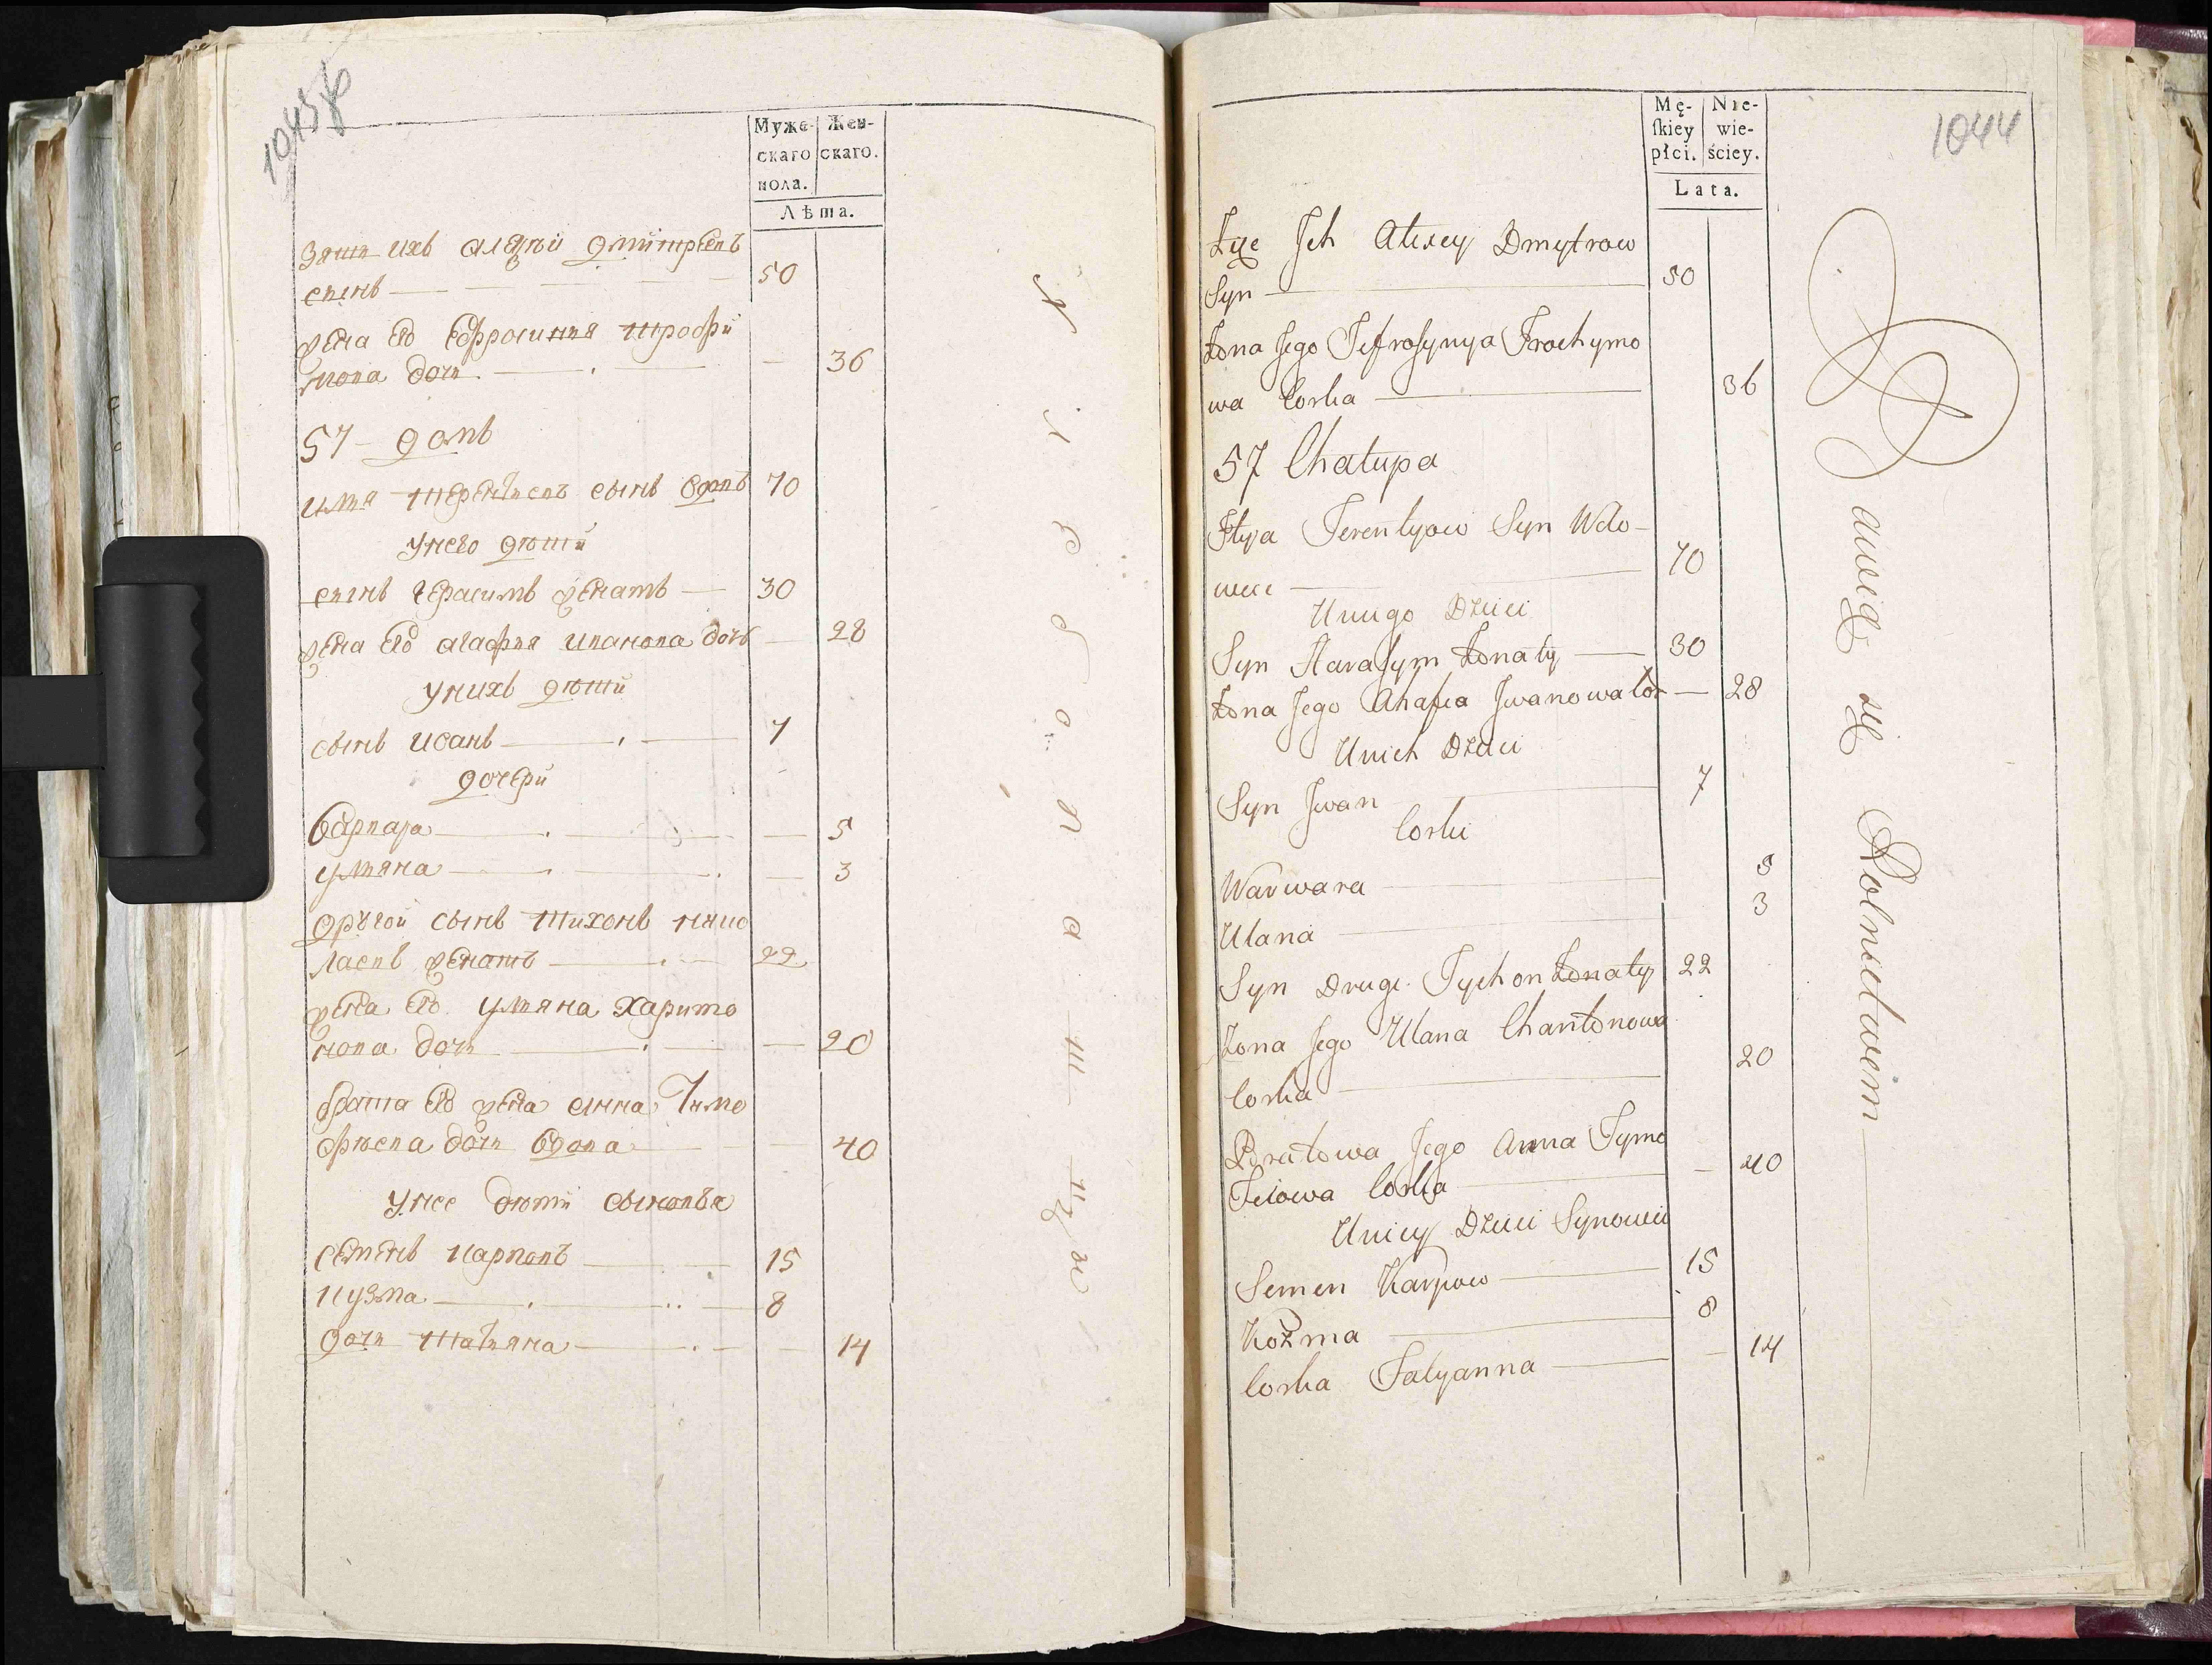 1043 об
Муже-
скаго
пола.
Жен-
скаго.
Лѣта.
зять ихъ алеѯѣй дмитриевъ
сынъ — 50
жена его ефросиния трофи
мова дочь — 36
57 — домъ
илья терентьевъ сынъ вдовъ 70
у него дѣти
сынъ герасимъ женатъ — 30
жена его агафья иванова дочь — 28
у нихъ дѣти
сынъ иванъ — 7
дочери
варвара — 5
ульяна — 3
другой сынъ тихонъ
женатъ — 22
жена его ульяна харито
нова дочь — 20
брата его жена анна тимо
фѣева дочь вдова — 40
у нее дѣти сыновья
семенъ карповъ — 15
кузма — 8
дочь татьяна — 14
1044
Mę-
ſkiey
płci.
Nie-
wie-
ściey.
Lata.
Zięc Jch Alexey Dmytrow
Syn — 50
Żona Jego Jefrosynya Trochymo
wa Corka — 36
57 Chałupa
Jlya Terentyow Syn Wdo-
wiec — 70
U niego Dzieci
Syn Harasym Żonaty — 30
Żona Jego Ahafia Jwanowa Cor — 28
U nich Dzieci
Syn Jwan 7
Corki
Warwara — 5
Ulana — 3
Syn Drugi Tychon Żonaty 22
Żona Jego Ulana Charitonowa
Corka — 20
Bratowa Jego Anna Tymo
feiowa Corka — 40
U niey Dzieci Synowie
Semen Karpow — 15
Kozma — 8
Corka Tatyanna — 14
Bawią się Rolnictwem